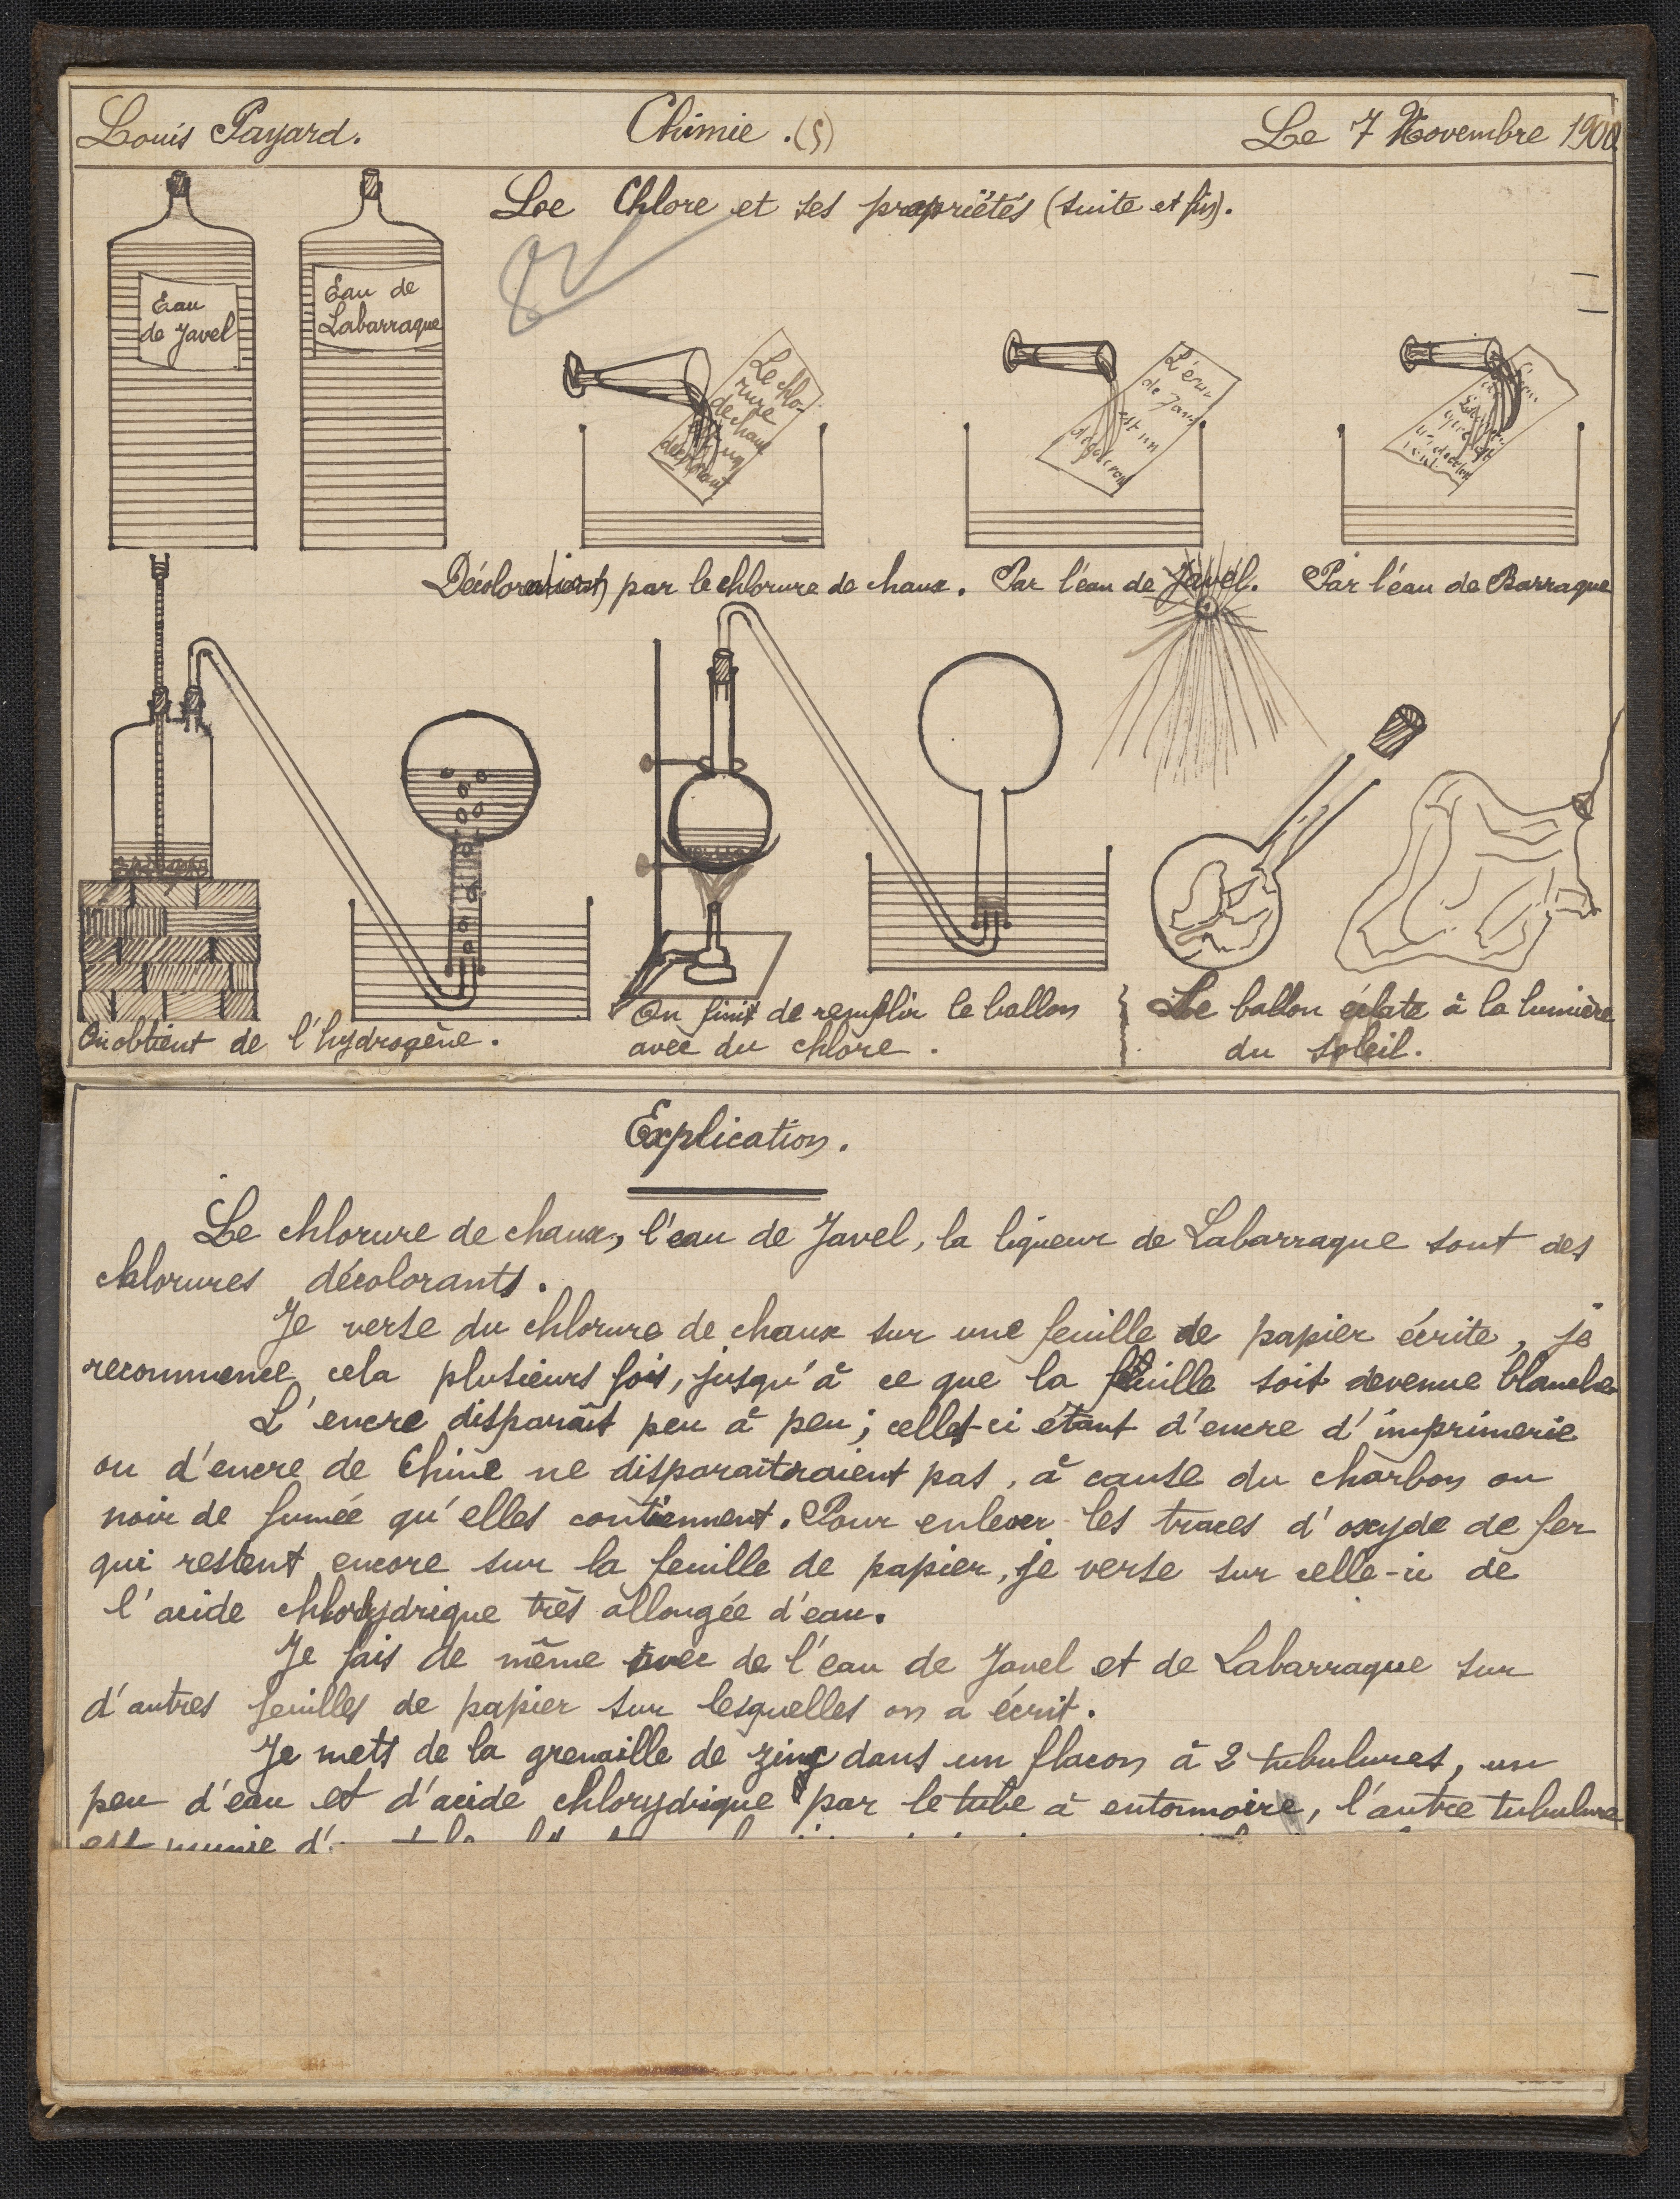 Louis Payard. Chimie. (5) Le 7 Novembre 1900
Le Chlore et ses propriétés (suite et fin).
Eau
de Javel
Eau de
Labarraque
Le chlo-
rure
de chaux
est un
décolorant
L'eau
de Javel
est un
décolorant
Décoloration par le chlorure de chaux. Par l'eau de Javel. Par l'eau de Barraque
On obtient de l'hydrogène.
On finit de remplir le ballon
avec du chlore.
Le ballon éclate à la lumière
du soleil.
Explication.
Le chlorure de chaux, l'eau de Javel, la liqueur de Labarraque sont des
chlorures décolorants.
Je verse du chlorure de chaux sur une feuille de papier écrite, je
recommence cela plusieurs fois, jusqu'à ce que la feuille soit devenue blanche
L'encre disparaît peu à peu; celle-ci étant d'encre d'imprimerie
ou d'encre de Chine ne disparaîtraient pas, à cause du charbon ou
noir de fumée qu'elles contiennent. Pour enlever les traces d'oxyde de fer
qui restent encore sur la feuille de papier, je verse sur celle-ci de
l'acide chlorydrique très allongée d'eau.
Je fais de même avec de l'eau de Javel et de Labarraque sur
d'autres feuilles de papier sur lesquelles on a écrit.
Je mets de la grenaille de zinc dans un flacon à 2 tubulures, un
peu d'eau et d'acide chlorydrique par le tube à entonnoire, l'autre tubulure
est munie d'